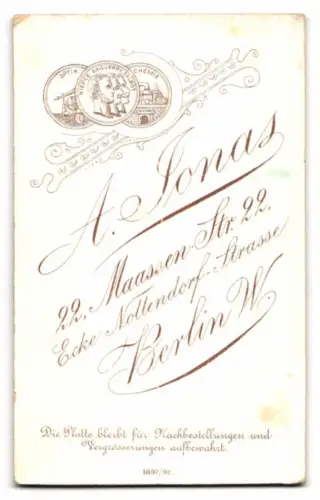 OPTIK
CHEMIE
A. Jonas
22, Maassen-Str. 22.
Ecke Nollendorf-Strasse
Berlin W.
Die Platte bleibt für Nachbestellungen und
Vergrösserungen aufbewahrt.